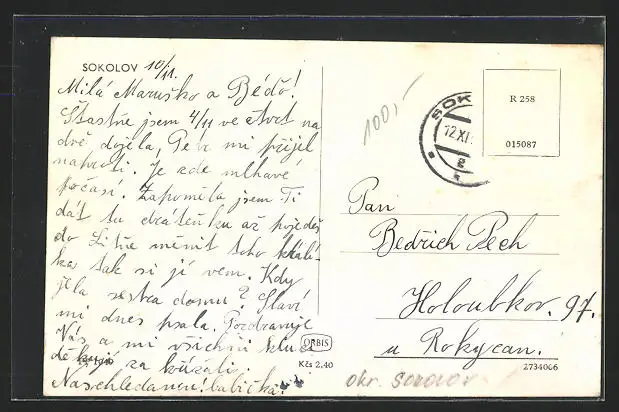 SOKOLOV 10/11.
Milá Maruško a Bédo!
Šťastně jsem 4/11 ve čtvrt na
dvě dojela, Pepa mi přijel
naproti. Je zde mlhavé
počasí. Zapoměla jsem Ti
dát tu drátěnku až pojedeš
do Litně měnit toho králí-
ka, tak si jí vem. Kdy
jela sestra domů? Slávi
mi dnes psala. Pozdravuje
Vás a mi všichni kluci
děkují za
Naschledanou! babička!
ORBIS
Kčs 2,40
100,-
SOK
12 XI
2
R 258
015087
Pan
Bedřich Pech
Holoubkov. 97.
u Rokycan.
2734066
okr. Sokolov